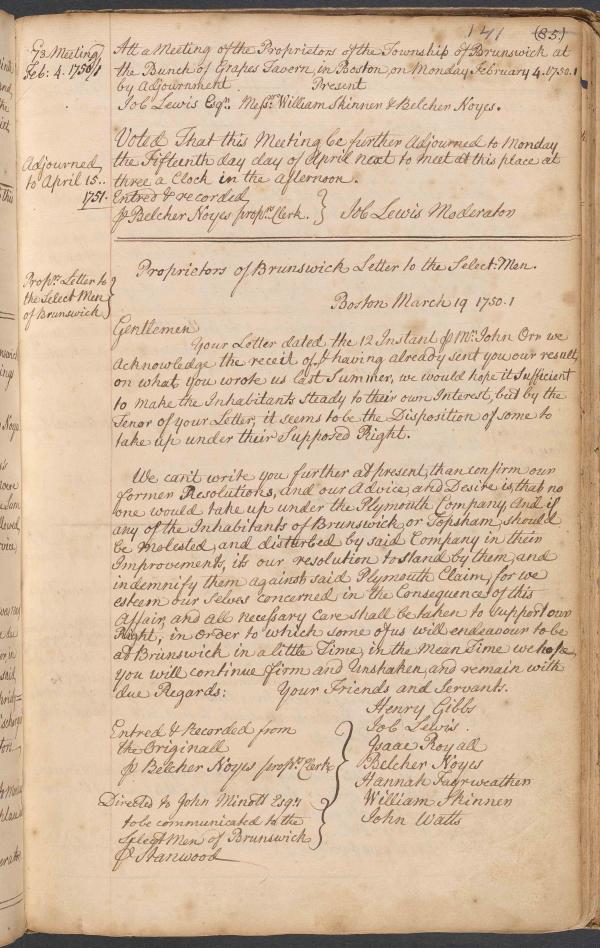 141 (85)
73 Meeting
Feb: 4. 1750/1
Att a Meeting of the Proprietors of the Township of Brunswick at
the Bunch of Grapes Tavern, in Boston, on Monday February 4. 1750.1
by Adjournment. Present
Job Lewis Esqr. Messrs William Skinner & Belcher Noyes.
Adjourned
to April 15..
1751.
Voted That this Meeting be further Adjourned to Monday
the Fifteenth day day of April next to meet at this place at
three a Clock in the afternoon.
Entred & recorded
⅌ Belcher Noyes proprs Clerk. } Job Lewis Moderator
Proprs Letter to
the Select Men
of Brunswick }
Proprietors of Brunswick Letter to the Select-Men.
Boston March 19 1750.1
Gentlemen
Your Letter dated the 12 Instant ⅌ Mr. John Orr we
Acknowledge the receit of, & having already sent you our result,
on what you wrote us last Summer, we would hope it sufficient
to make the Inhabitants steady to their own Interest, but by the
Tenor of your Letter, it seems to be the Disposition of some to
take up under their Supposed Right.
We can't write you further at present, than confirm our
former Resolutions, and our Advice, and Desire is, that no
one would take up under the Plymouth Company, And if
any of the Inhabitants of Brunswick, or Topsham, should
be molested, and disturbed by said Company in their
Improvements, its our resolution to stand by them, and
indemnify them against said Plymouth Claim, for we
esteem our selves concerned in the Consequence of this
Affair, and all necessary care shall be taken to support our
Right, in order to which some of us will endeavour to be
at Brunswick in a little Time, in the Mean Time we hope
you will continue firm and Unshaken, and remain with
due Regards: Your Friends and Servants.
Henry Gibbs
Job Lewis.
Isaac Royall
Belcher Noyes
Hannah Fayrweather
William Skinner
John Watts
Entred & Recorded from
the Originall
⅌ Belcher Noyes proprs Clerk
Directed to John Minott Esqr
to be communicated to the
Select Men of Brunswick
⅌ Stanwood